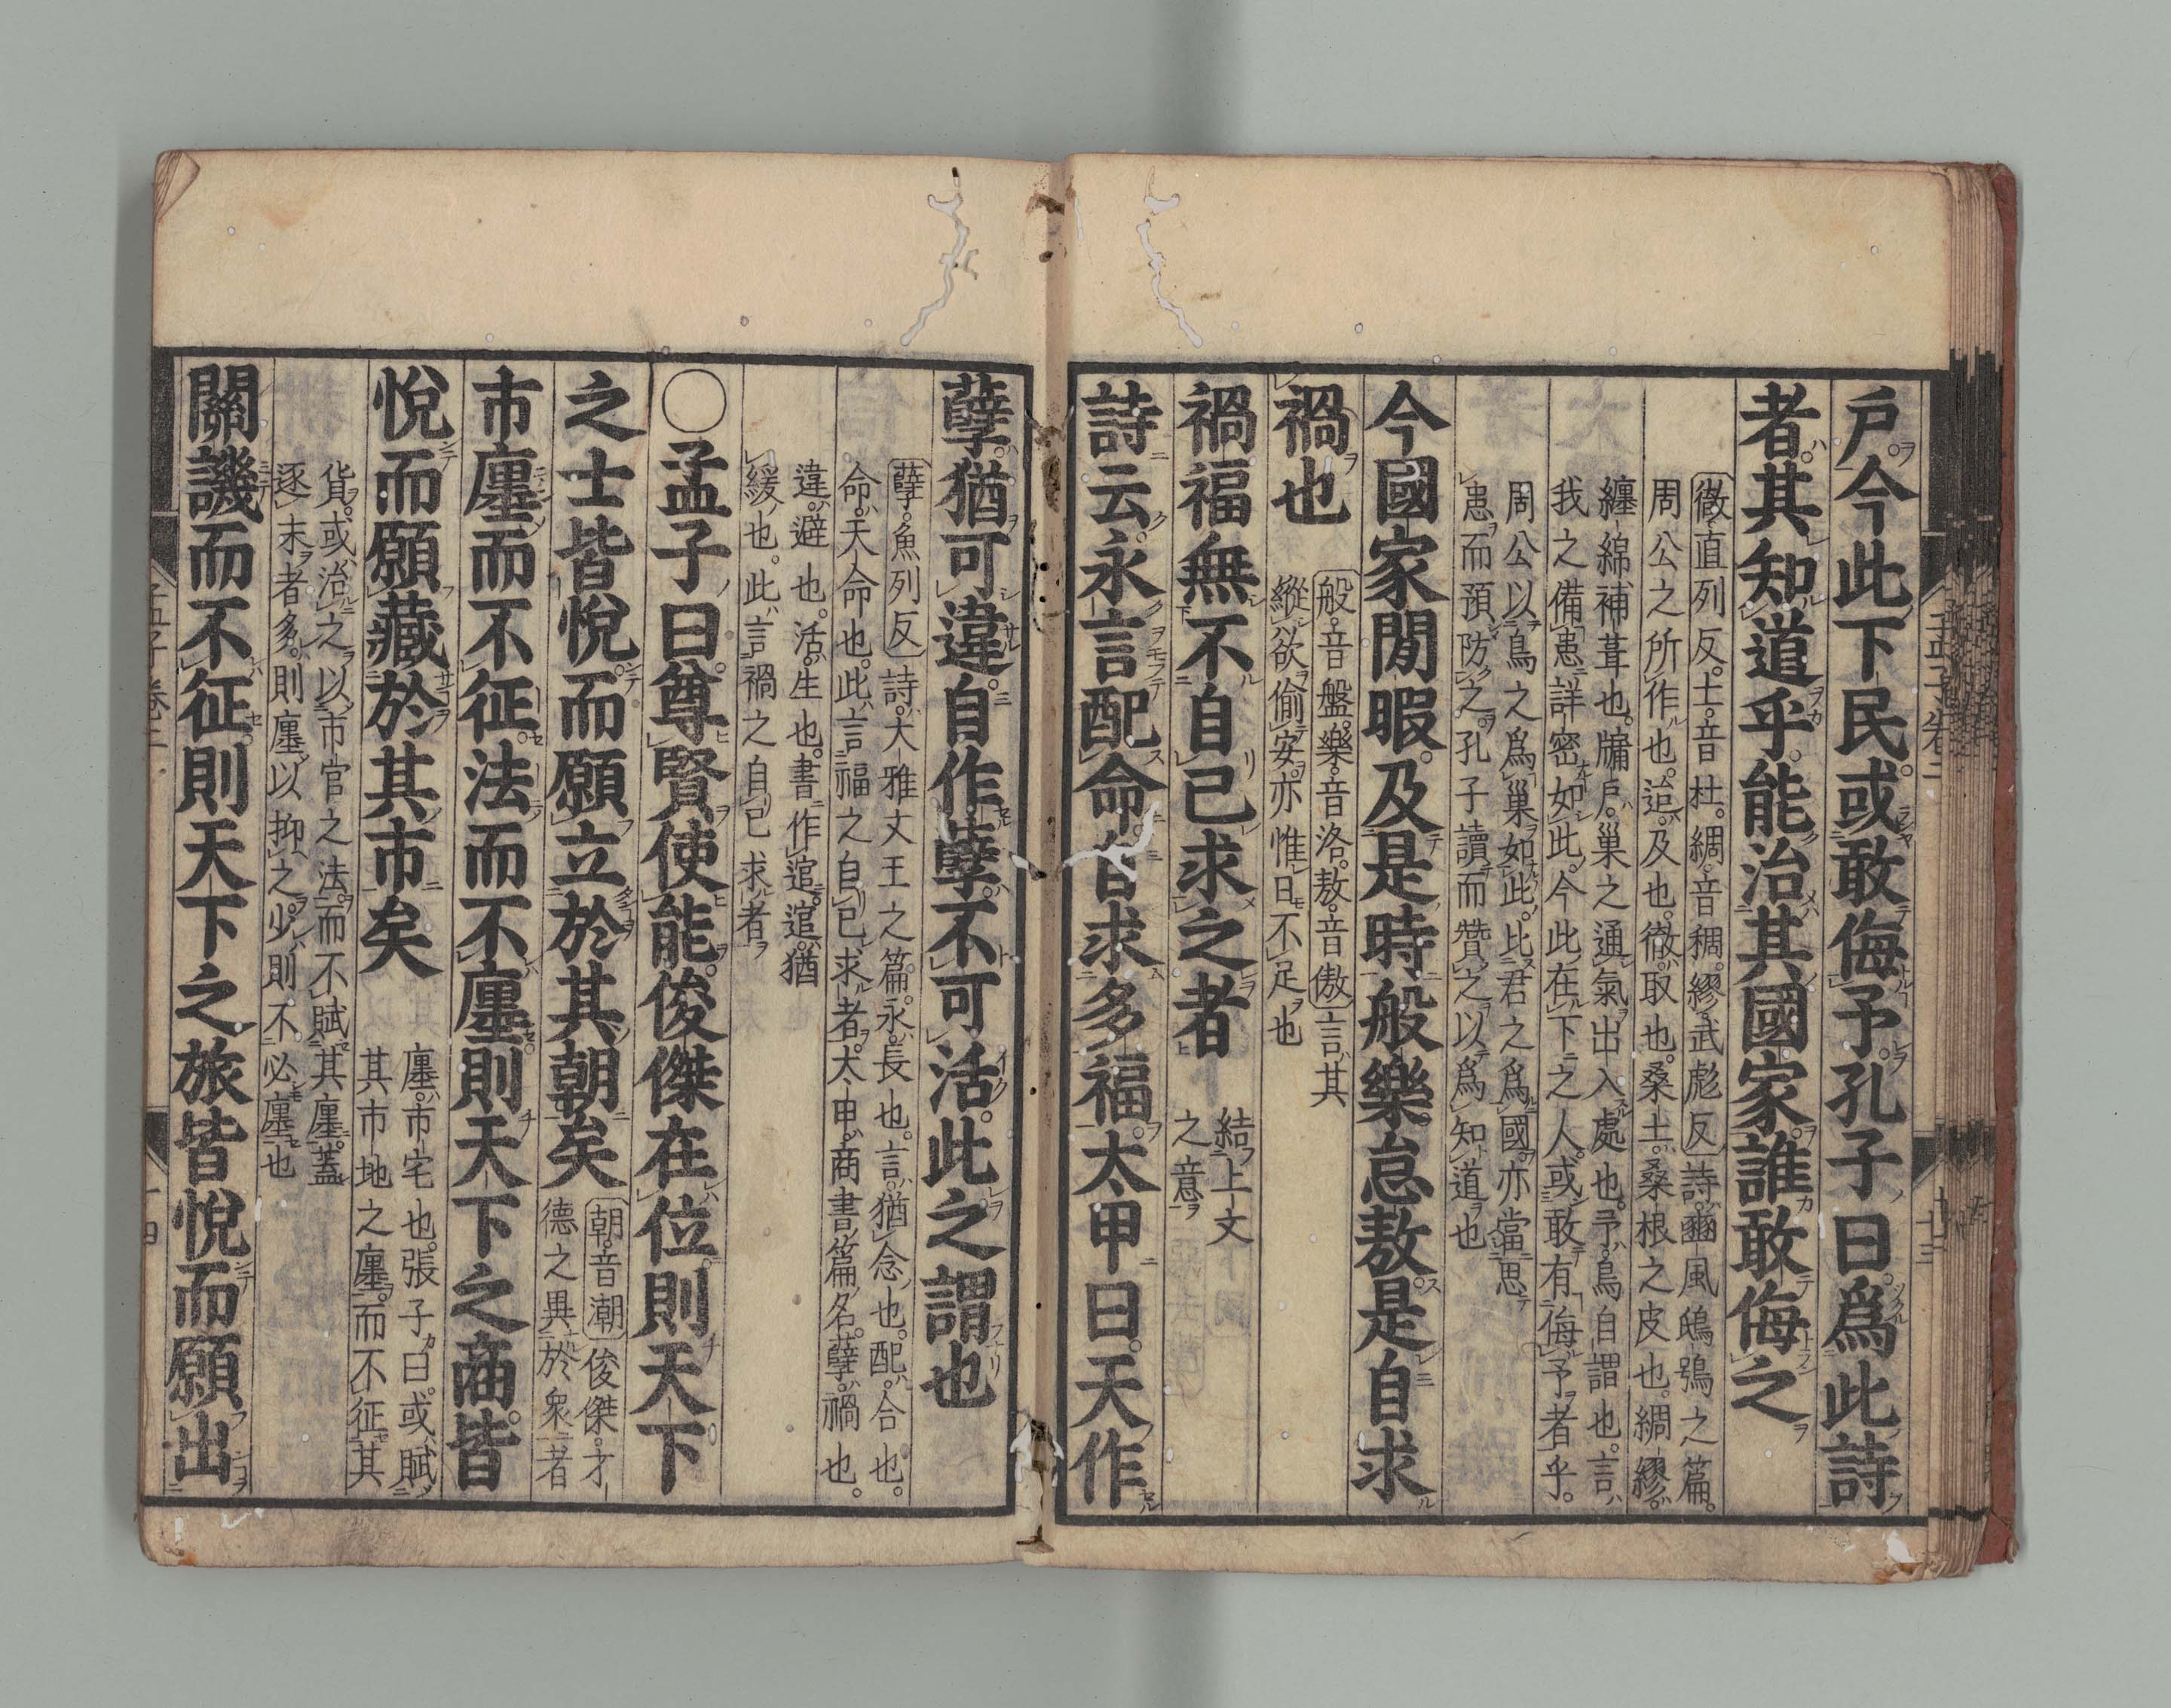 戶今此下民或敢侮予孔子曰爲此詩
者其知道乎能治其國家誰敢侮之
徹直列反土音杜綢音稠繆武彪反詩豳風鴟鴞之篇
周公之所作也迨及也徹取也桑土桑根之皮也綢繆
纏綿補葺也牖戶巢之通氣出入處也予鳥自謂也言
我之備患詳密如此今此在下之人或敢有侮予者乎
周公以鳥之爲巢如此比君之爲國亦當思
患而預防之孔子讀而贊之以爲知道也
今國家閒暇及是時般樂怠敖是自求
禍也
般音盤樂音洛敖音傲言其
縱欲偷安亦惟日不足也
禍福無不自己求之者
結上文
之意
詩云永言配命自求多福太甲曰天作
孽猶可違自作孽不可活此之謂也
孽魚列反詩大雅文王之篇永長也言猶念也配合也
命天命也此言福之自己求者太甲商書篇名孽禍也
違避也活生也書作逭逭猶
緩也此言禍之自己求者
○孟子曰尊賢使能俊傑在位則天下
之士皆悅而願立於其朝矣
朝音潮俊傑才
德之異於衆者
市廛而不征法而不廛則天下之商皆
悅而願藏於其市矣
廛市宅也張子曰或賦
其市地之廛而不征其
貨或治之以市官之法而不賦其廛蓋
逐末者多則廛以抑之少則不必廛也
關譏而不征則天下之旅皆悅而願出